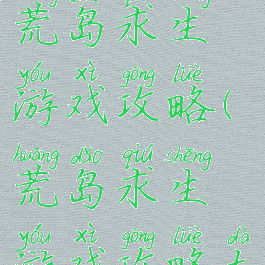 荒岛求生
yóu xì gōng lüè
游戏攻略(
huāng dǎo qiú shēng
荒岛求生
yóu xì gōng lüè dà
游戏攻略大